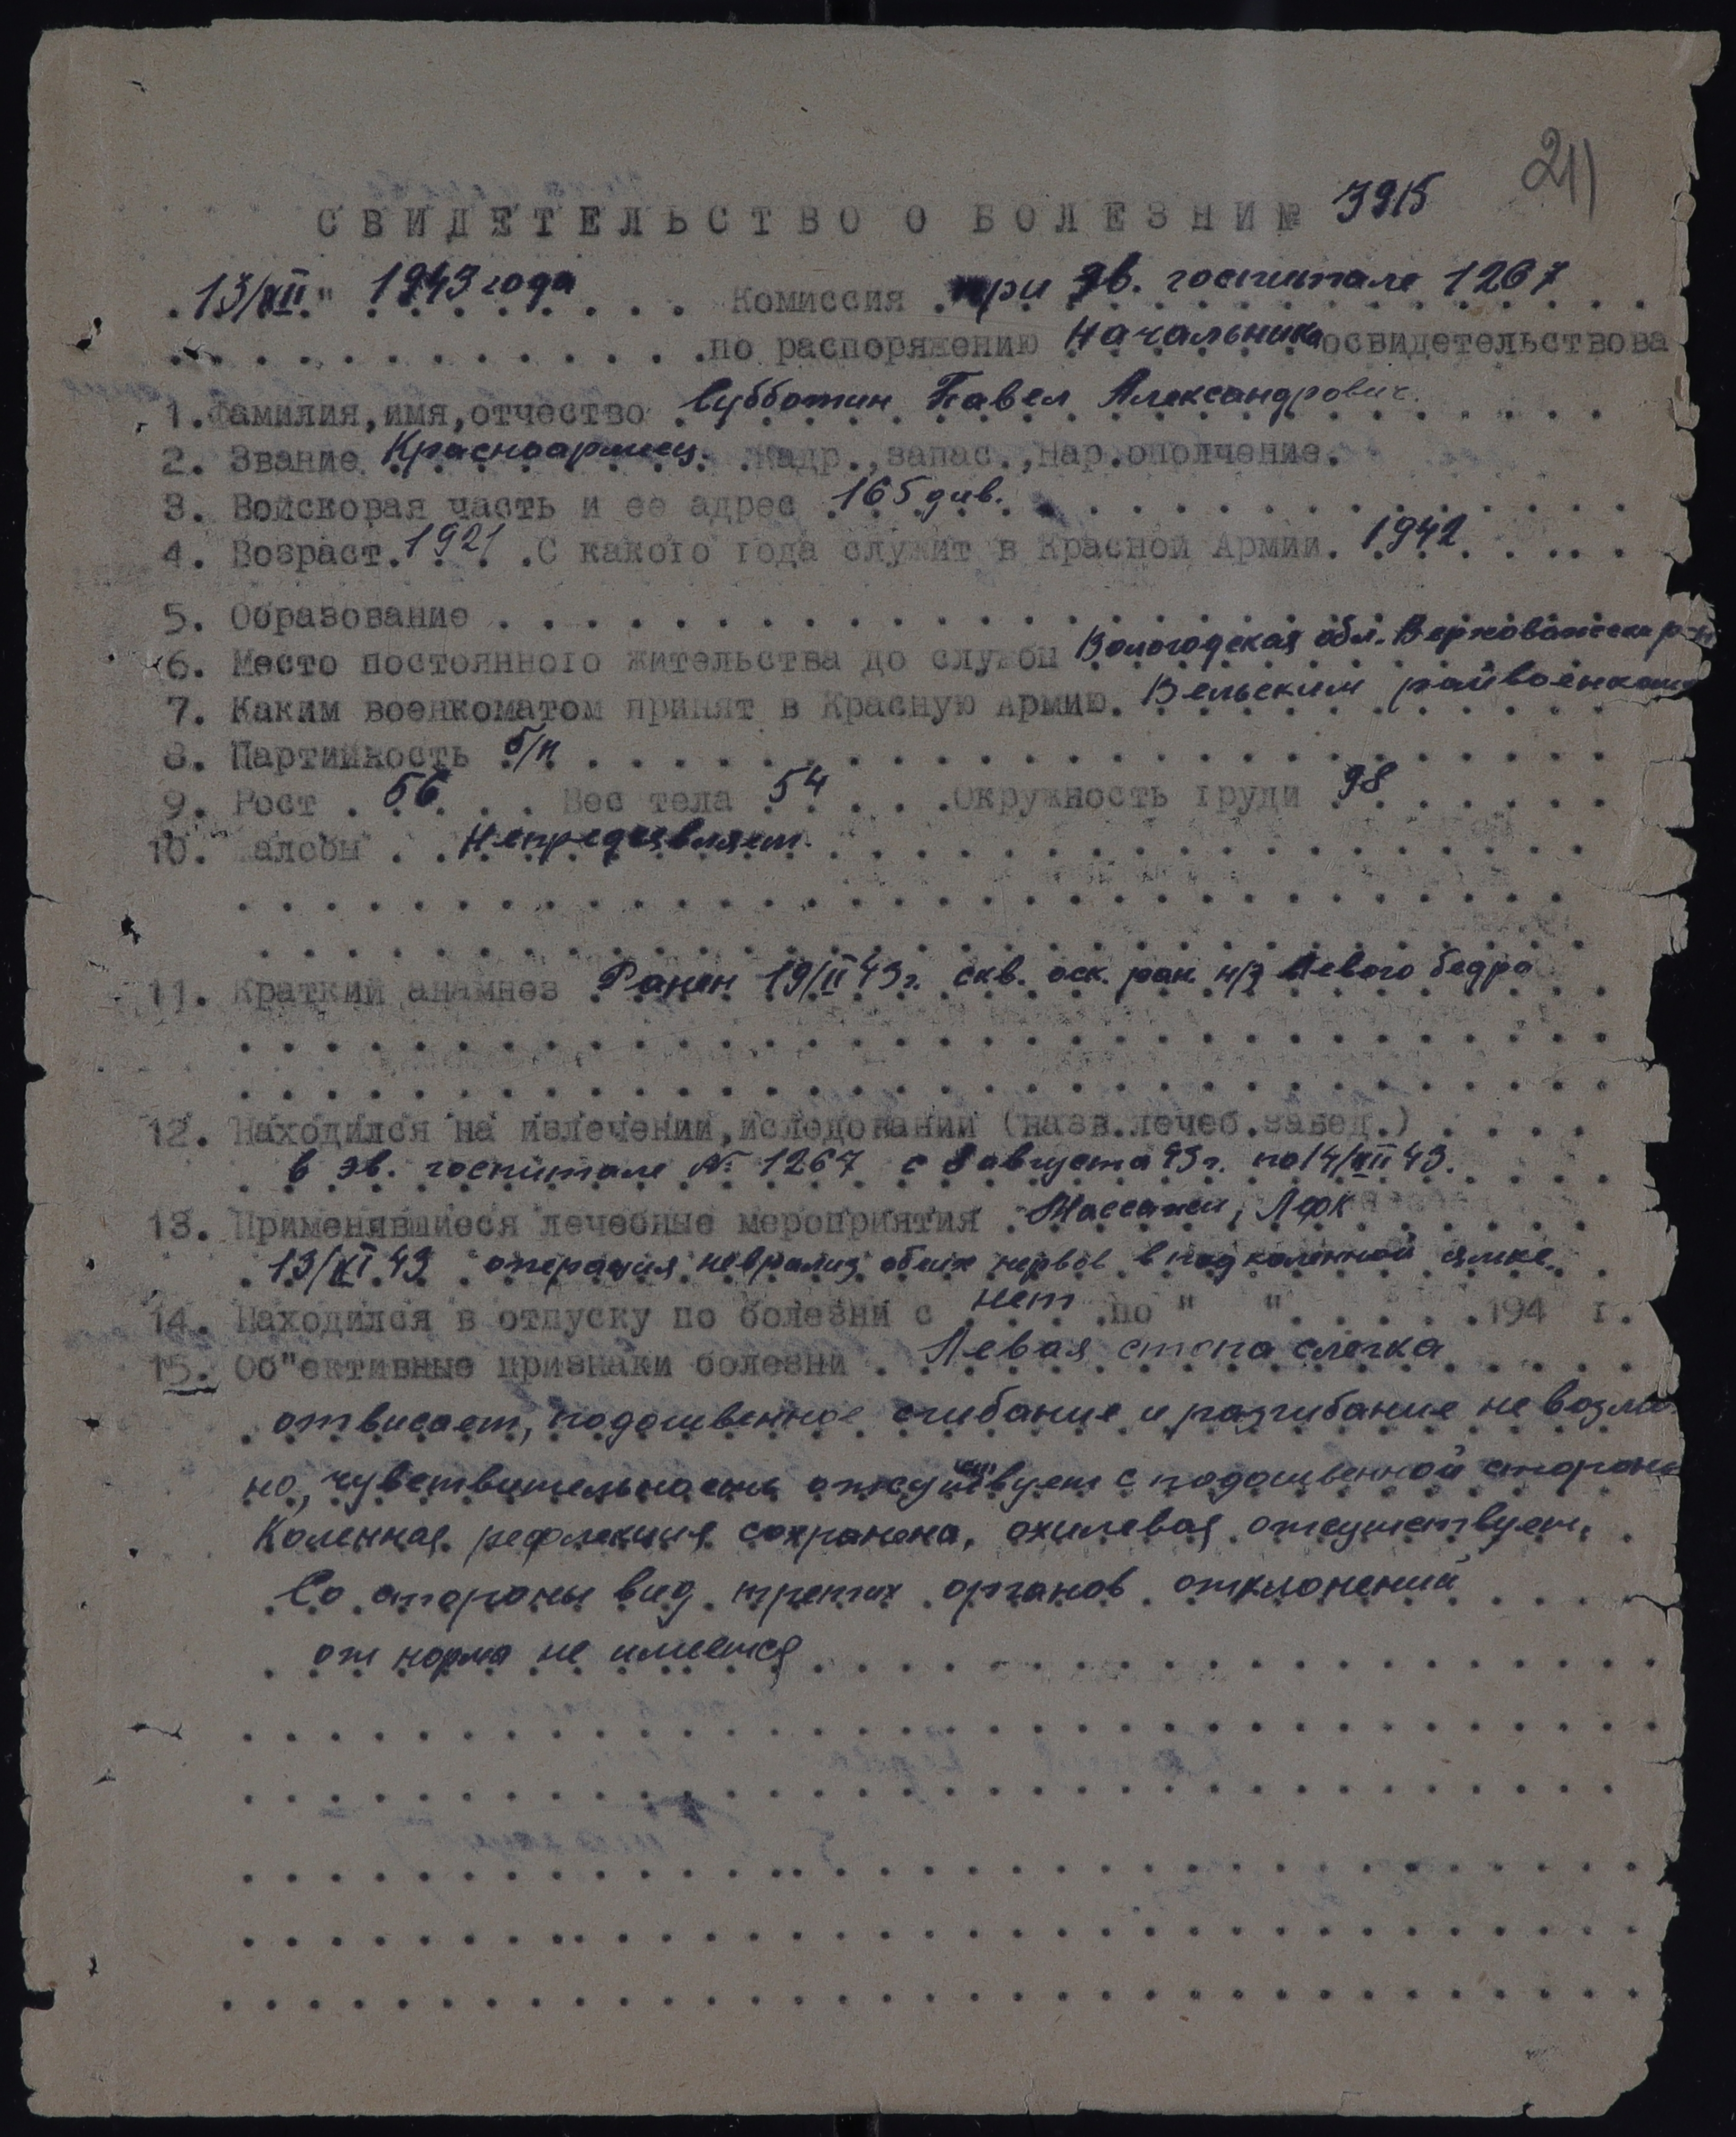 211
СВИДЕТЕЛЬСТВО О БОЛЕЗНИ № 3915
"13/XII" 1943 года Комиссия при эв. госпитале 1267
по распоряжению Начальника освидетельствова
1. Фамилия, имя, отчество Субботин Павел Александрович.
2. Звание Красноармеец. Кадр., запас., нар. ополчение.
3. Войсковая часть и ее адрес 165 див.
4. Возраст 1921. С какого года служит в Красной Армии. 1942
5. Образование
6. Место постоянного жительства до службы Вологодская обл. Верховажски р-н
7. Каким военкоматом принят в Красную Армию. Вельским райвоенкомат
8. Партийность б/п
9. Рост 56 Вес тела 54 Окружность груди 98
10. Жалобы Непредъявляет.
11. Краткий анамнез Ранен 19/II 43г. скв. оск. ран. н/з левого бедра
12. Находился на излечении, иследовании (назв. лечеб. завед.)
в эв. госпитале № 1267 с 8 августа 43г. по 14/XII 43.
13. Применявшиеся лечебные мероприятия Массажи, ЛФК
13/XI 43 операция невролиз обеих нервов в подколенной ямке.
14. Находился в отпуску по болезни с нет по " " 194 г.
15. Об"ективные признаки болезни Левая стопа слегка
отвисает, подошвенное сгибание и разгибание не возмо
но, чувствительность отсутствует с подошвенной сторон
Коленная рефлекция сохранена, ахилевая отсутствует.
Со стороны внутрених органов отклонений
от норма не имеется